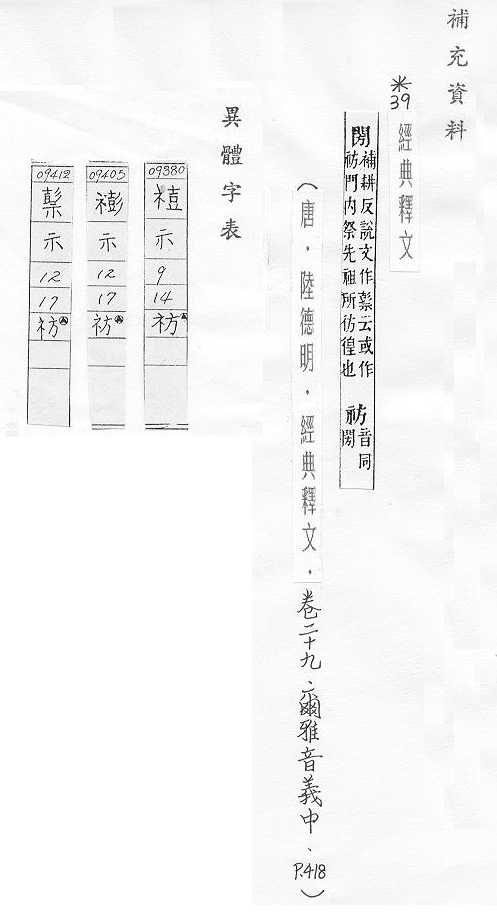 補充資料
※39
經典釋文
閍 補耕反說文作云或作
祊門內祭先祖所彷徨也 祊 音同閍
(唐．陸德明．經典釋文．卷二十九、爾雅音義中、P.418)
異體字表
09380
示
9
14
祊
09405
𥛱
示
12
17
祊
09412
示
12
17
祊